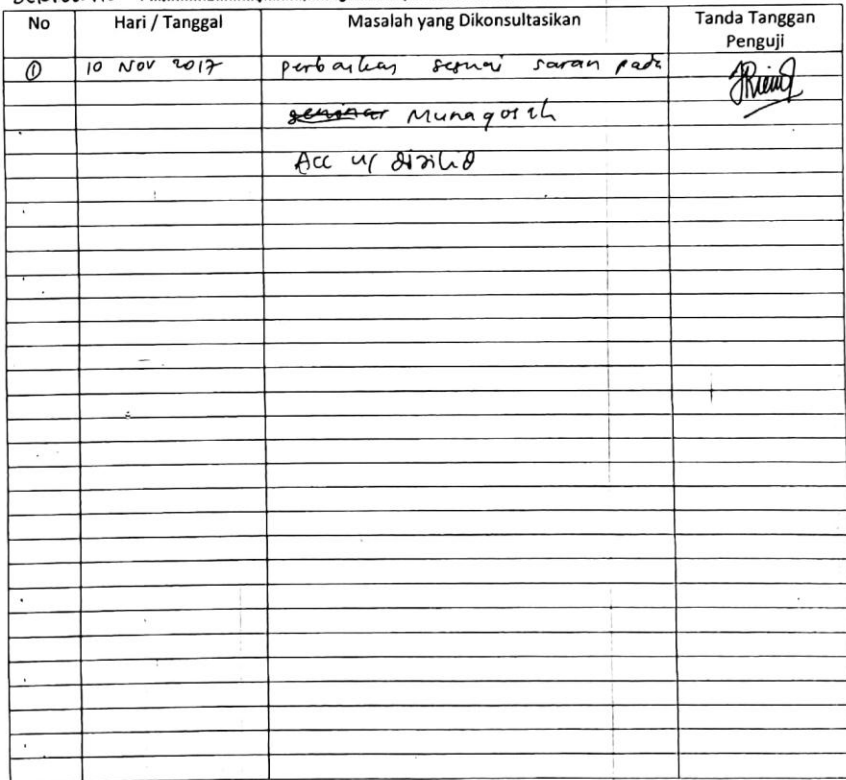 No Hari / Tanggal Masalah yang Dikonsultasikan Tanda Tanggan
Penguji
① 10 NOV 2017 perbaikan sesuai saran pada
seminar Munaqosah
Acc u/ dijilid